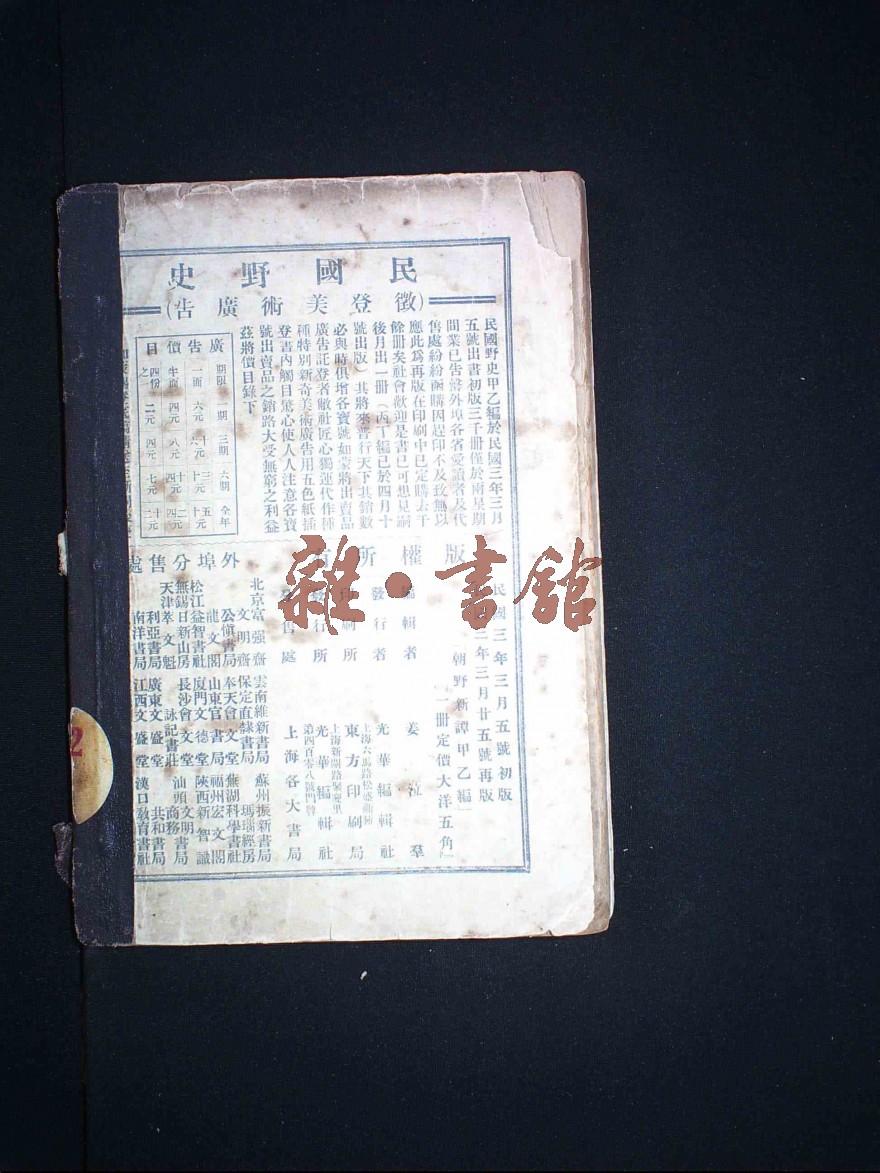 民國野史
(徵登美術廣告)
民國野史甲乙編於民國三年三月
五號出書初版三千冊僅於兩星期
間業已告罄外埠各省愛讀者及代
售處紛紛函購因趕印不及致無以
應此為再版在印刷中已定購去千
餘冊矣社會歡迎是書已可想見嗣
後月出一冊(丙丁編已於四月十
號出版)其將來普行天下其銷數
必與時俱增各寶號如蒙將出賣品
廣告託登者敝社匠心獨運代作種
種特別新奇美術廣告用五色紙插
登書內觸目驚心使人人注意各寶
號出賣品之銷路大受無窮之利益
茲將價目錄下
廣告價目
期限 一期 三期 六期 全年
一面 六元
半面 四元 八元
四份之 二元 四元 七元
版權所有
民國三年三月五號初版
三年三月廿五號再版
朝野新譚甲乙編
一冊定價大洋五角
編輯者 姜泣羣
發行者 光華編輯社
印刷所 東方印刷局
發行所 光華編輯社
第四百零八號門牌
售處 上海各大書局
外埠分售處
北京富强齋 雲南維新書局 蘇州振新書局
文明齋 保定直隸書局 瑪瑙經房
公愼書局 奉天會文堂 蕪湖科學書社
龍文閣 山東官書局 福州宏文閣
松江益智書社 廈門文德堂 陝西新智識
無錫日新山房 長沙會文堂 文明書局
天津萃文魁 詠記書莊 汕頭商務
利亞書局 廣東文盛堂 共和書局
南洋書局 江西文盛堂 漢口教育書社
2
雜·書館